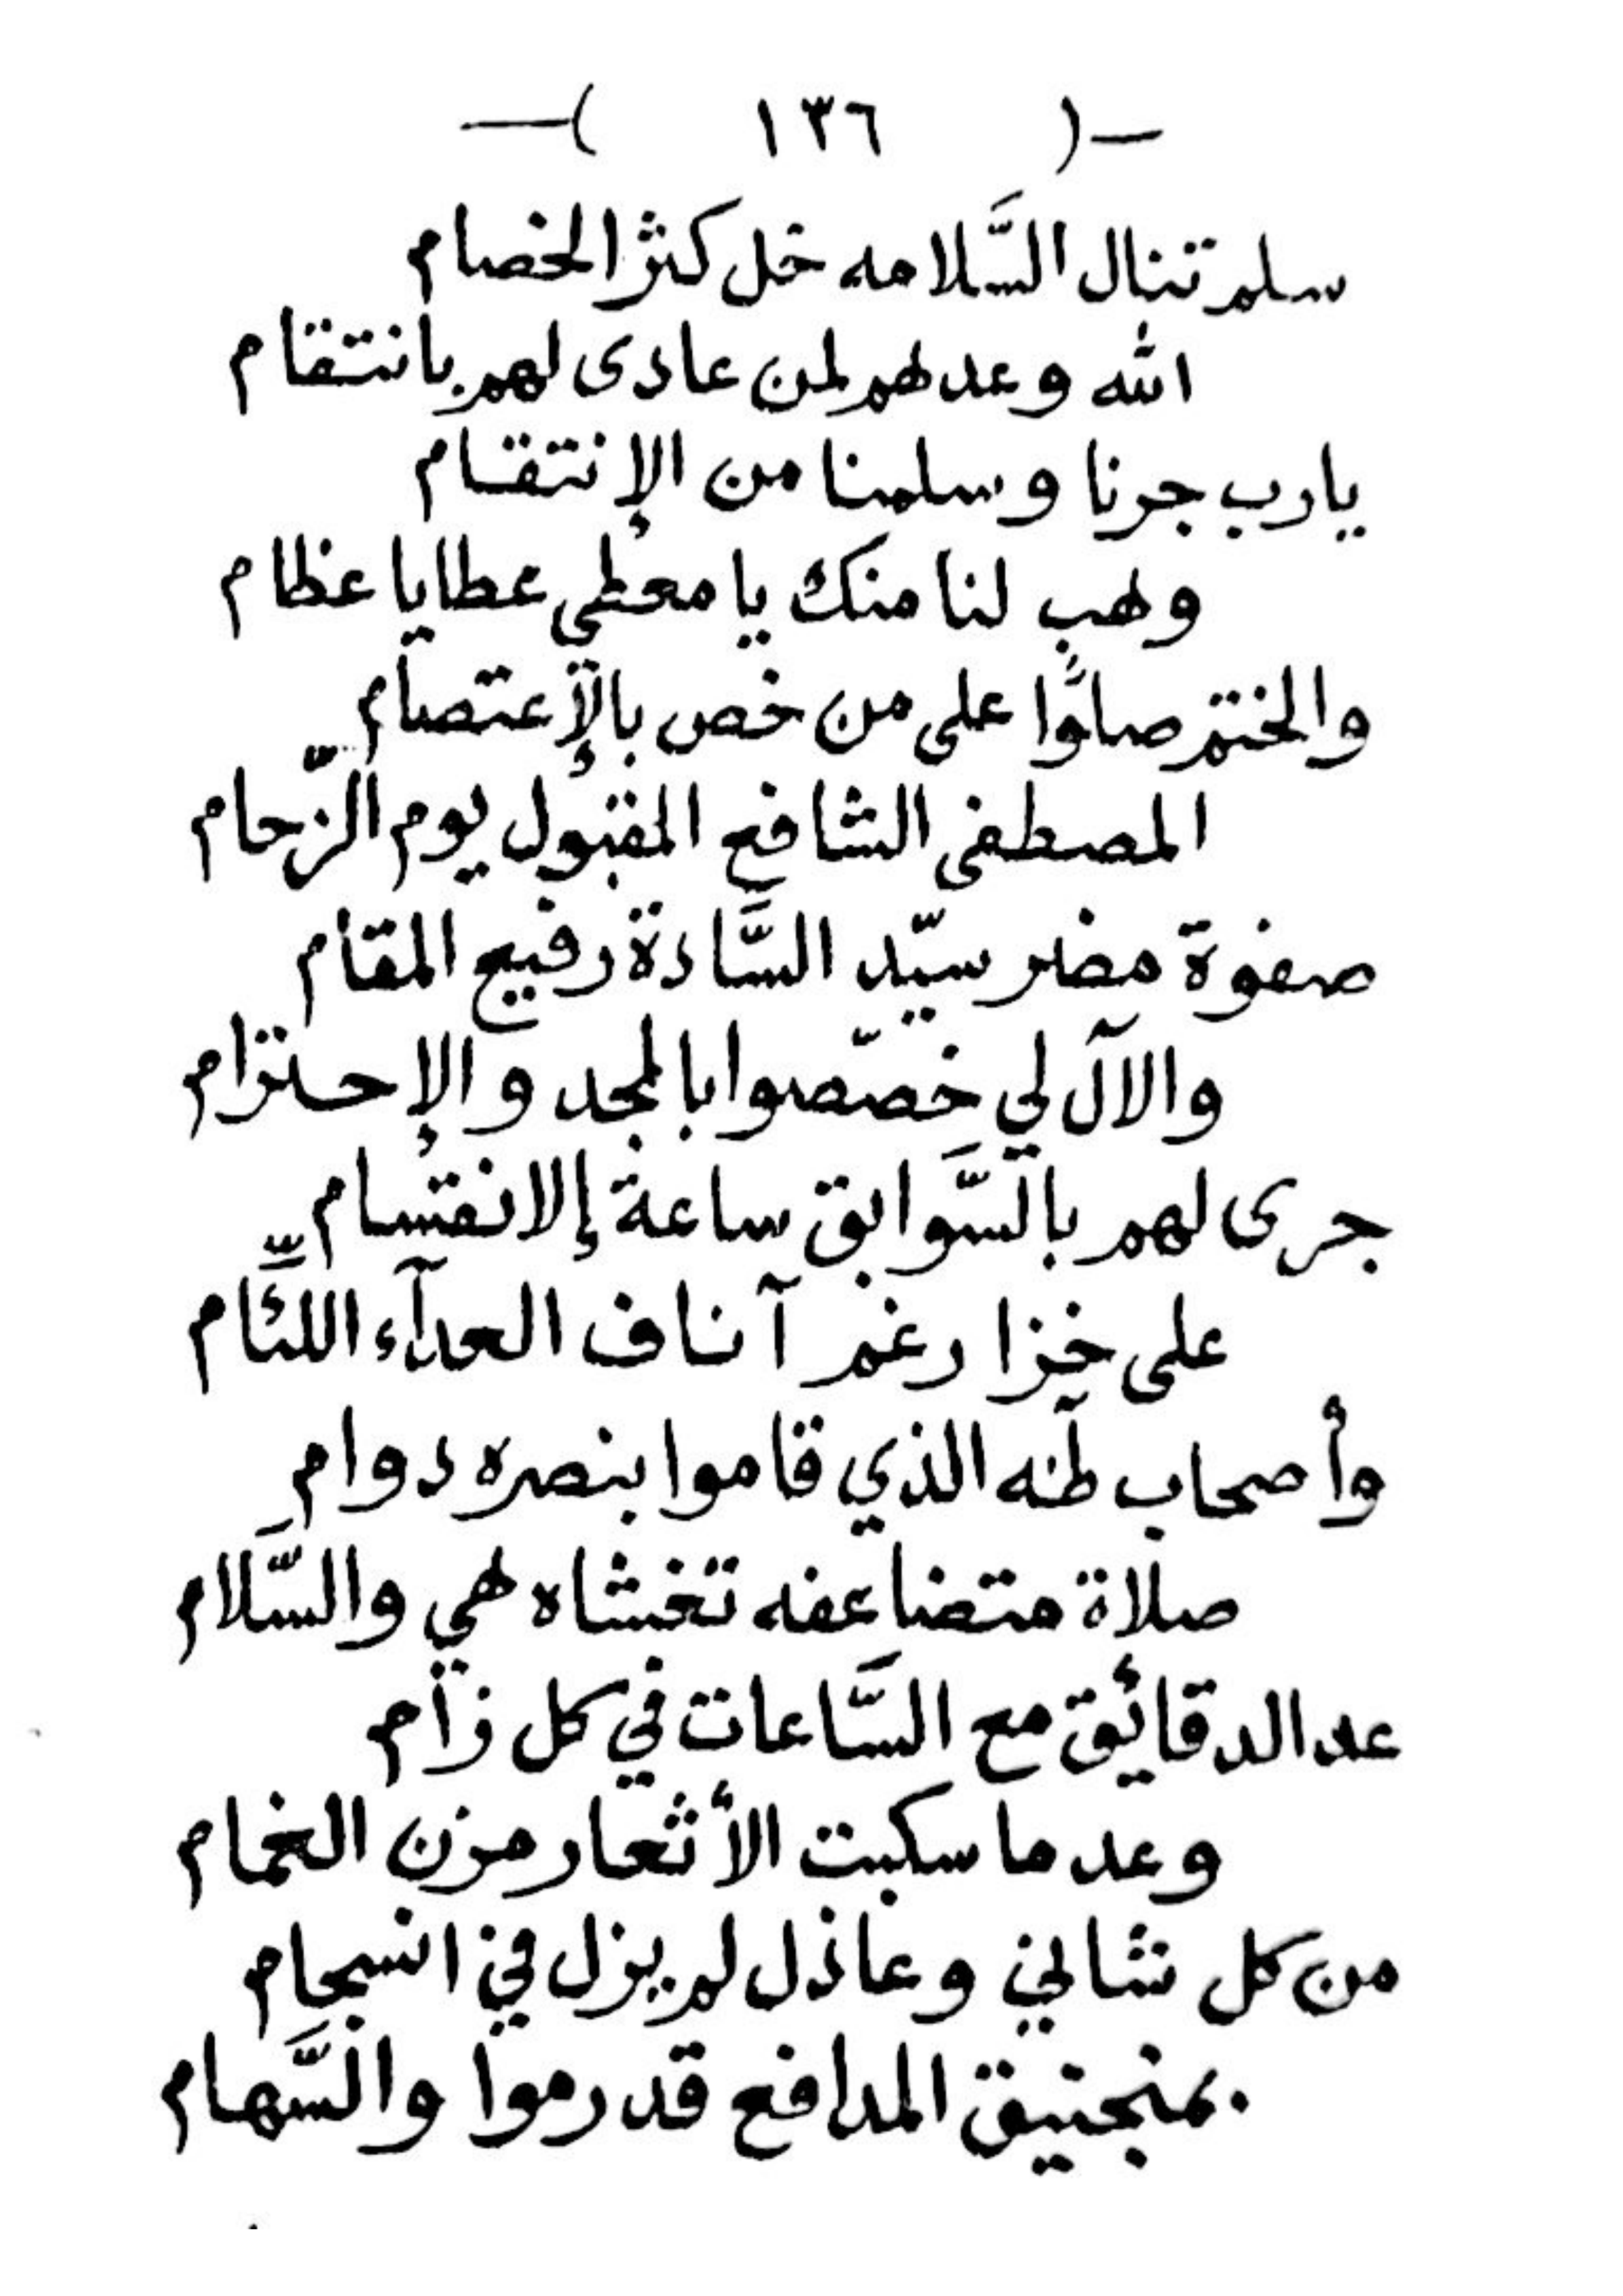 -( ١٣٦ )-
سلم تنال السَّلامه خل كثر الخصام
الله وعدلهم لمن عادى لهم بانتقام
يارب جرنا وسلمنا من الإنتقام
وهب لنا منك يا معطي عطايا عظام
والختم صلوا على من خص بالإعتصام
المصطفى الشافع المقبول يوم الزّحام
صفوة مضر سيّد السَّادة رفيع المقام
والآل لي خصّصوا بالمجد والإحترام
جرى لهم بالسَّوابق ساعة إلانقسام
على خزا رغم آناف العدآء اللئام
وأصحاب طه الذي قاموا بنصره دوام
صلاة متضاعفه تغشاه هي والسَّلام
عد الدقائق مع السَّاعات في كل زام
وعد ما سكبت الأثعار مزن الغمام
من كل شاني وعاذل لم يزل في انسجام
بمنجنيق المدافع قد رموا والسَّهام